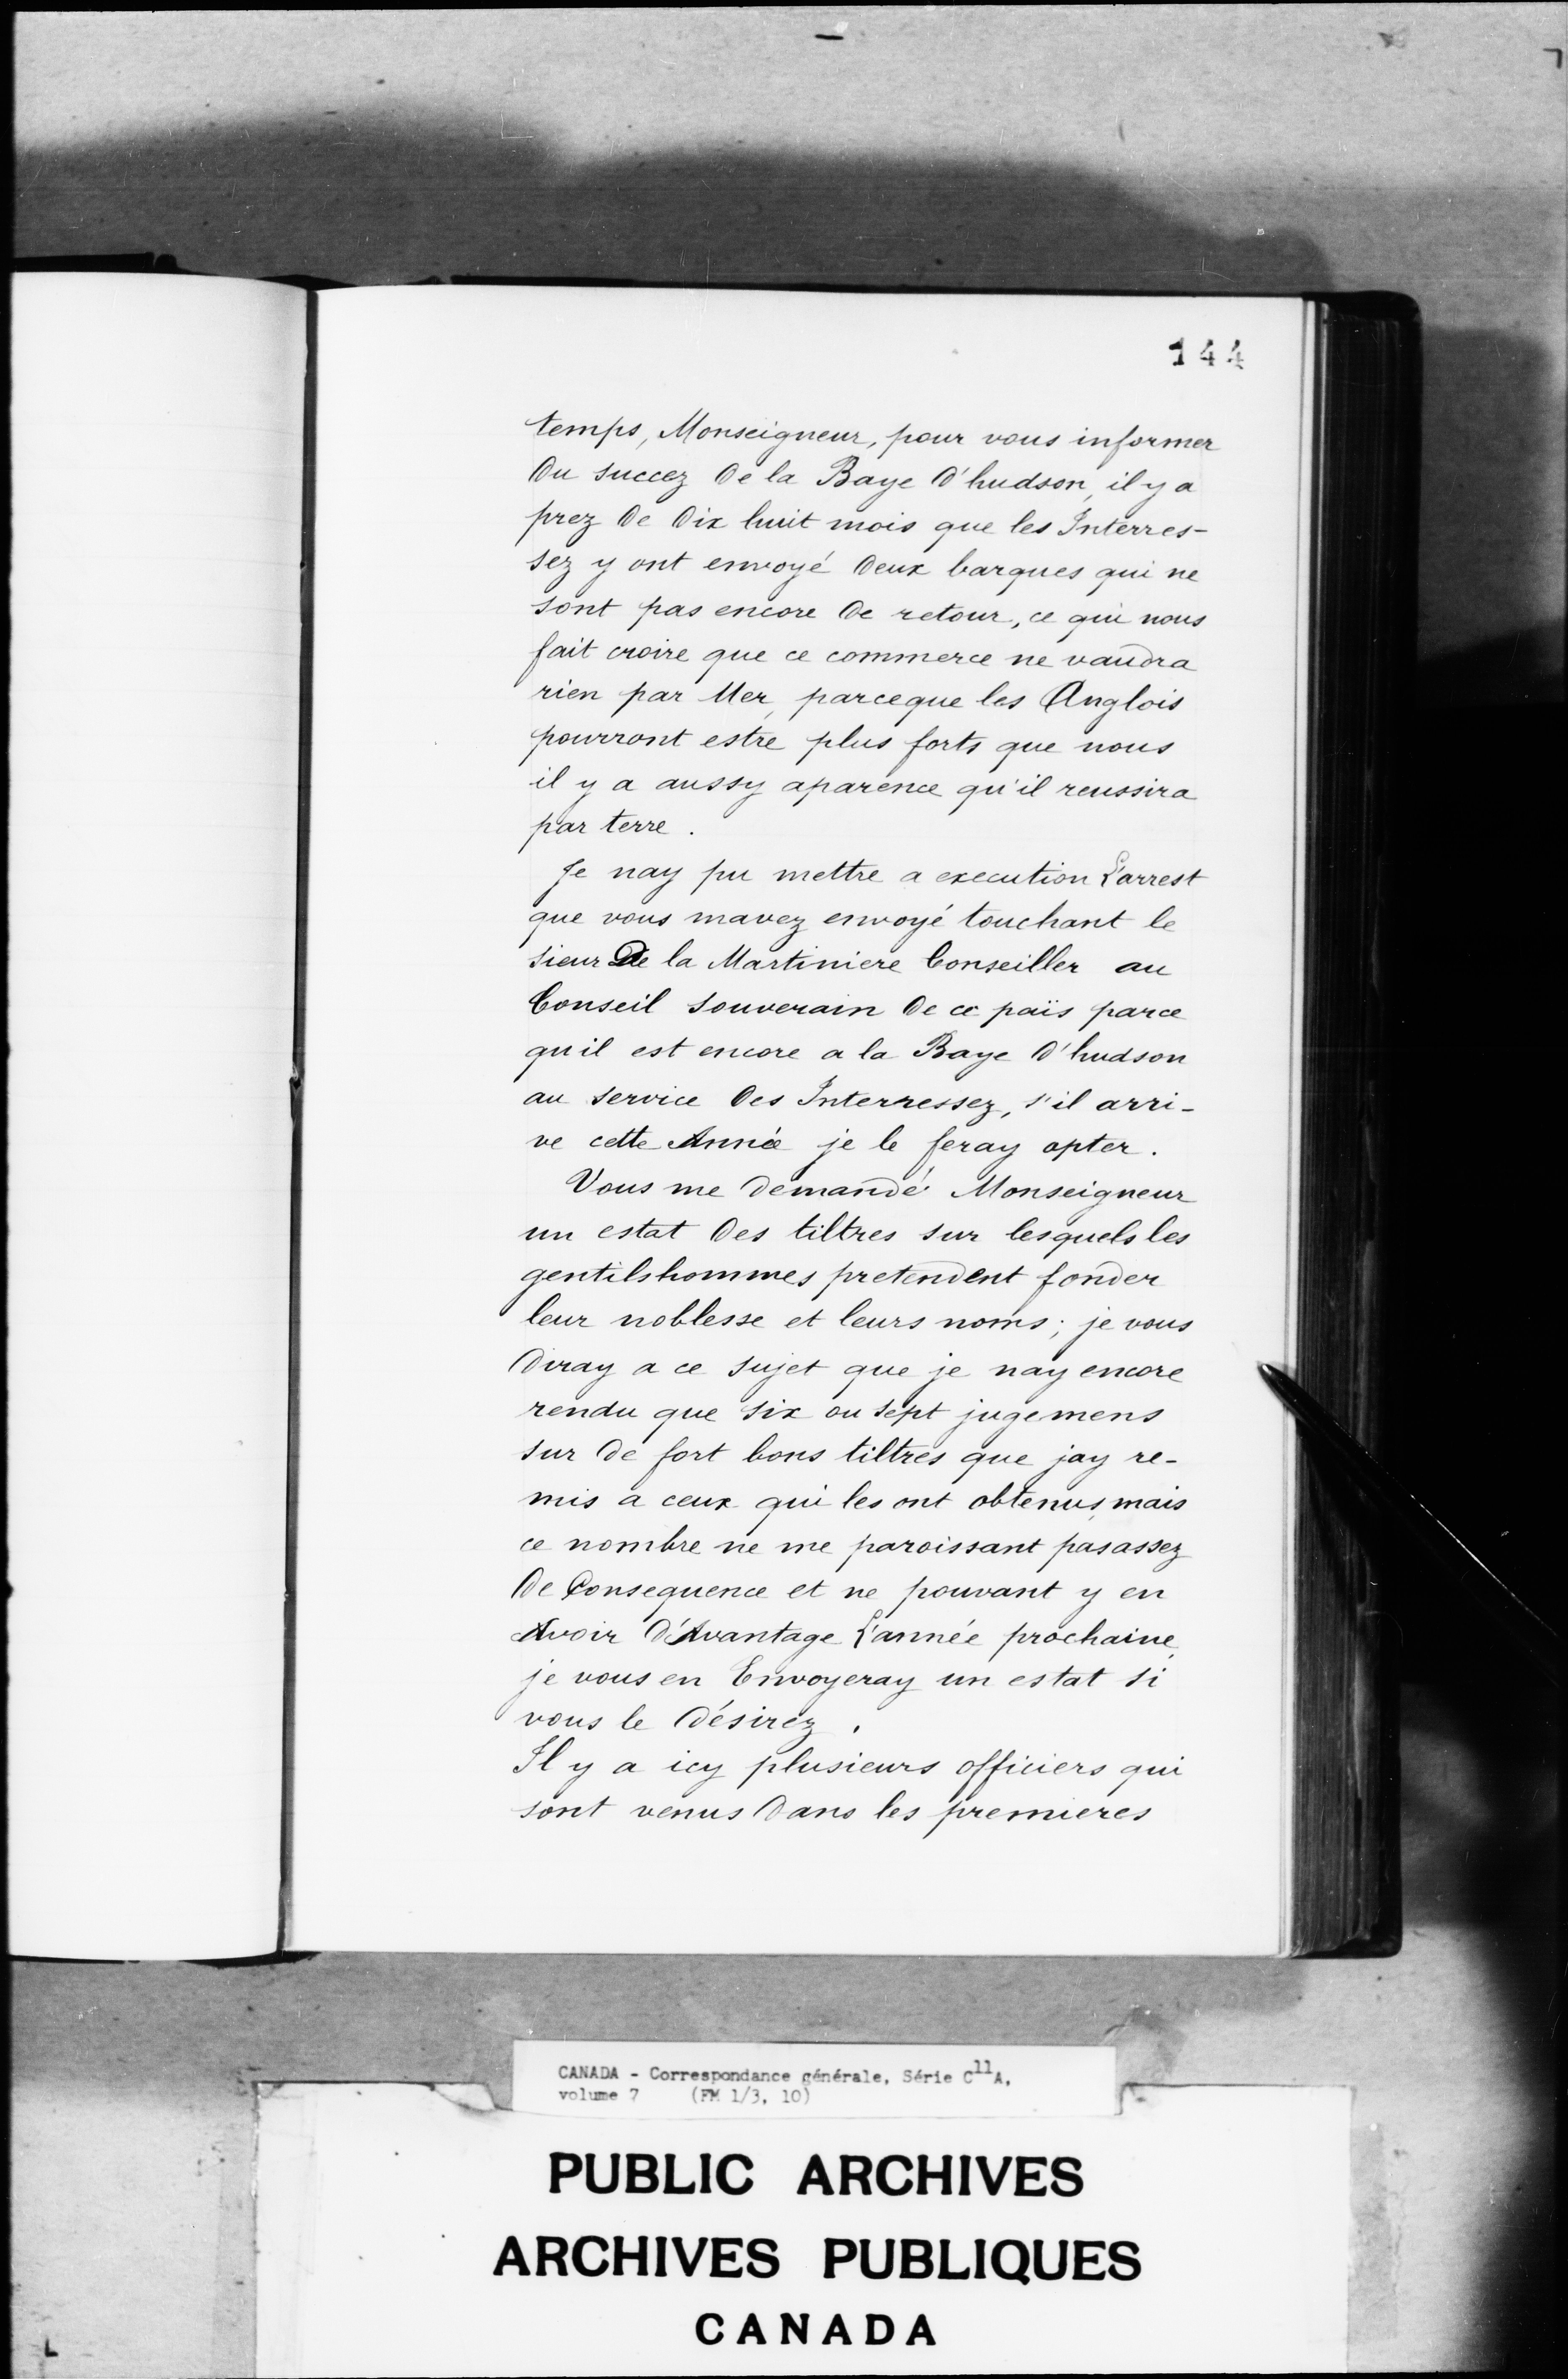 144
temps, Monseigneur, pour vous informer
Du succez De la Baye D'hudson, il y a
prez De Dix huit mois que les Interres-
sez y ont envoyé Deux barques qui ne
sont pas encore De retour, ce qui nous
fait croire que ce commerce ne vaudra
rien par Mer, parceque les Anglois
pourront estre plus forts que nous
il y a aussy aparence qu'il reussira
par terre.
Je nay pu mettre a execution L'arrest
que vous mavez envoyé touchant le
sieur De la Martiniere Conseiller au
Conseil souverain De ce païs parce
qu'il est encore a la Baye D'hudson
au service Des Interressez, s'il arri-
ve cette Année je le feray opter.
Vous me demandé Monseigneur
un estat Des tiltres sur lesquels les
gentilshommes pretendent fonder
leur noblesse et leurs noms; je vous
Diray a ce sujet que je nay encore
rendu que six ou sept jugemens
sur De fort bons tiltres que jay re-
mis a ceux qui les ont obtenus, mais
ce nombre ne me paroissant pas assez
De Consequence et ne pouvant y en
Avoir D'Avantage L'année prochaine,
je vous en Envoyeray un estat si
vous le Désirez.
Il y a icy plusieurs officiers qui
sont venus Dans les premieres
CANADA - Correspondance générale, Série C11A,
volume 7 (FM 1/3, 10)
PUBLIC ARCHIVES
ARCHIVES PUBLIQUES
CANADA
L